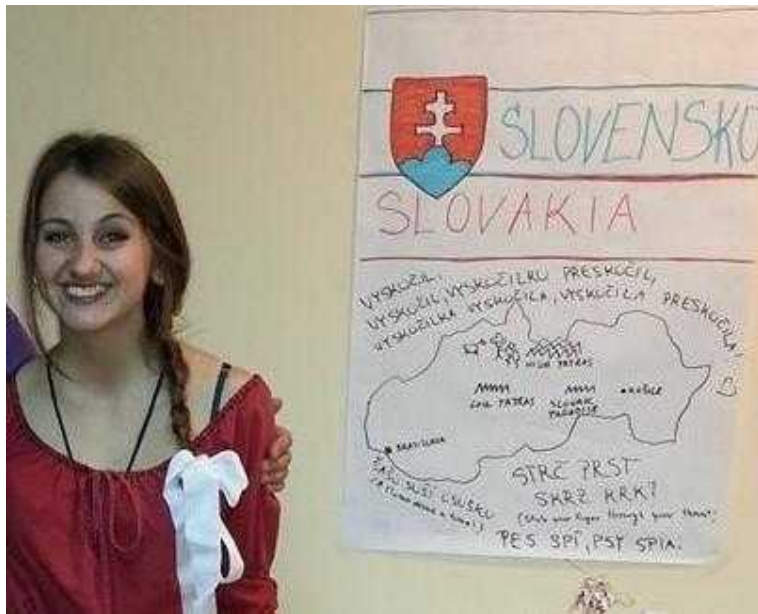 SLOVENSKO
SLOVAKIA
VYSKOČIL,
VYSKOČIL, VYSKOČILKU PRESKOČIL,
VYSKOČILKA VYSKOČILA, VYSKOČILA PRESKOČILA!
HIGH TATRAS
LOW TATRAS
SLOVAK
PARADISE
KOŠICE
BRATISLAVA
SUŠÍ OSUŠKU
STRČ PRST
SKRZ KRK?
(Stick your finger through your throat.
PES SPÍ, PSY SPIA.